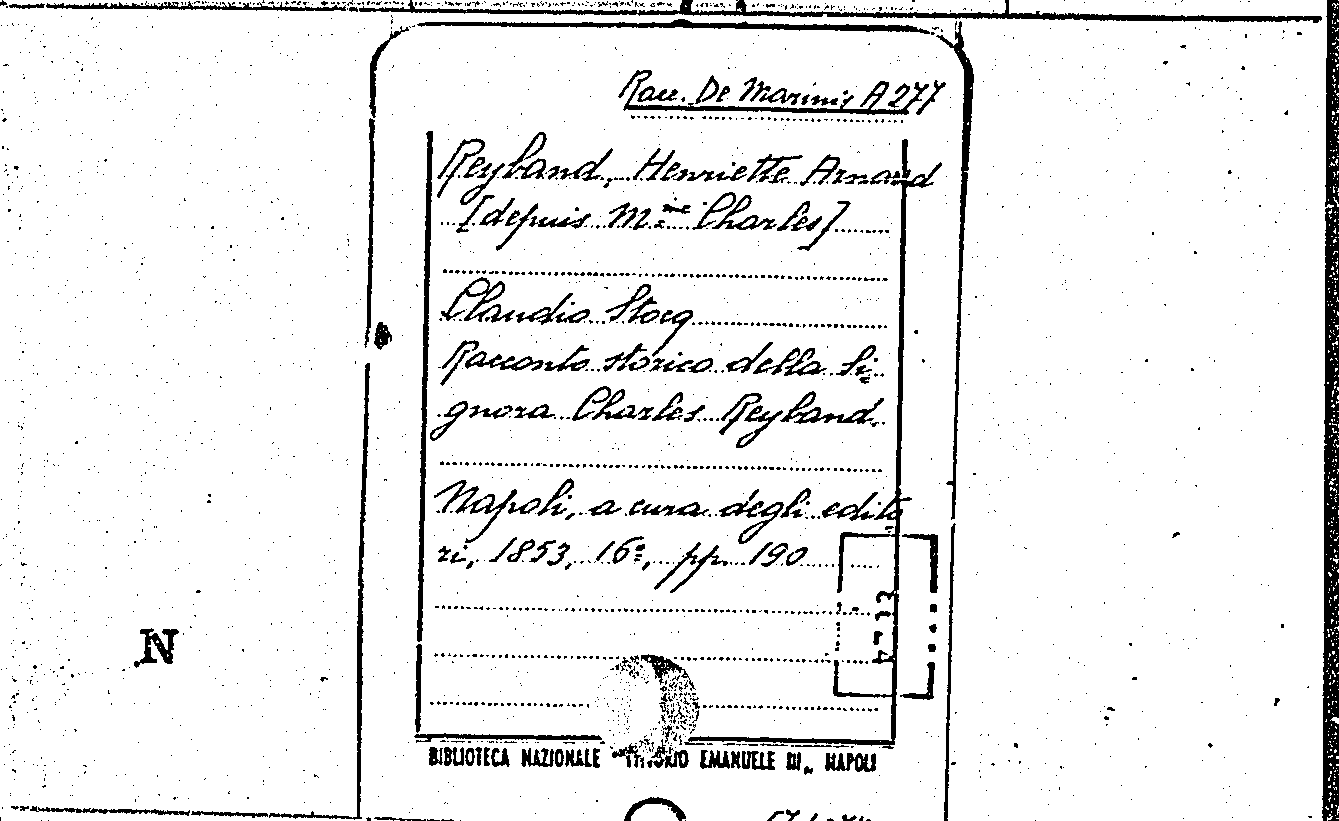 Racc. De Marinis A 277
Reyband, Henriette Arnaud
[depuis M.me Charles]
Claudio Stocq
Racconto storico della Si=
gnora Charles Reyband.
Napoli, a cura degli edito
ri, 1853, 16º, pp. 190
N
BIBLIOTECA NAZIONALE "VITTORIO EMANUELE III„ NAPOLI